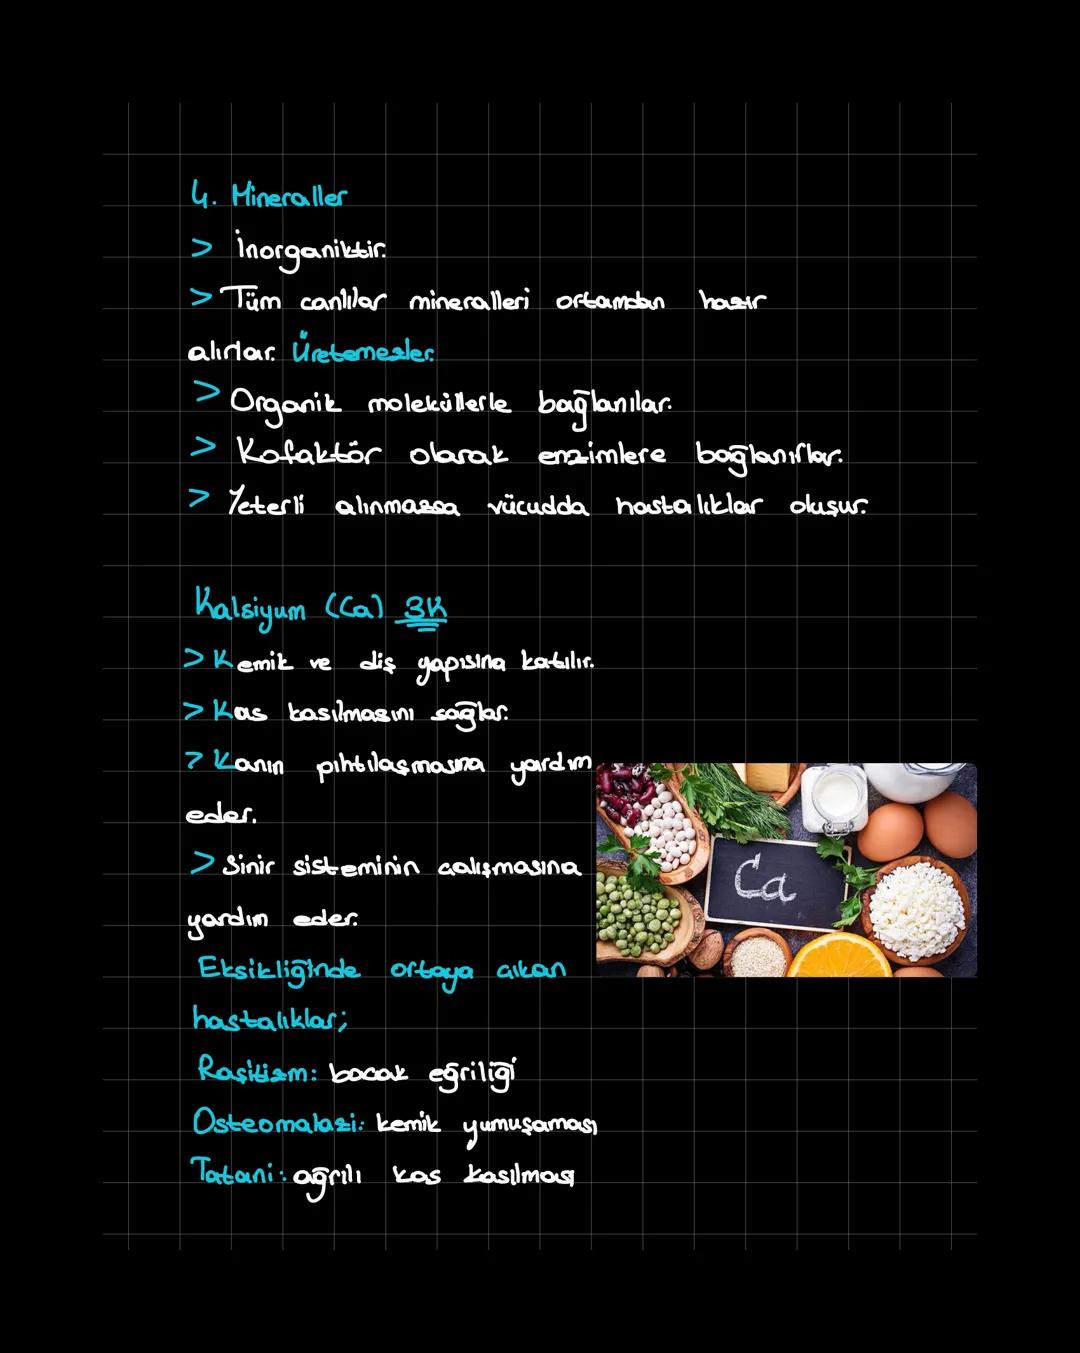 4. Mineraller
> İnorganiktir.
> Tüm canlılar mineralleri ortamdan hazır
alırlar. Üretemezler.
> Organik moleküllerle bağlanılar.
> Kofaktör olarak enzimlere bağlanırlar.
> Yeterli alınmazsa vücudda hastalıklar oluşur.
Kalsiyum (Ca) 3K
> Kemik ve diş yapısına katılır.
> Kas kasılmasını sağlar.
> Kanın pıhtılaşmasına yardım
eder.
> Sinir sisteminin çalışmasına
yardım eder.
Eksikliğinde ortaya çıkan
hastalıklar;
Raşitizm: bacak eğriliği
Osteomalazi: kemik yumuşaması
Tatani: ağrılı kas kasılması
Ca